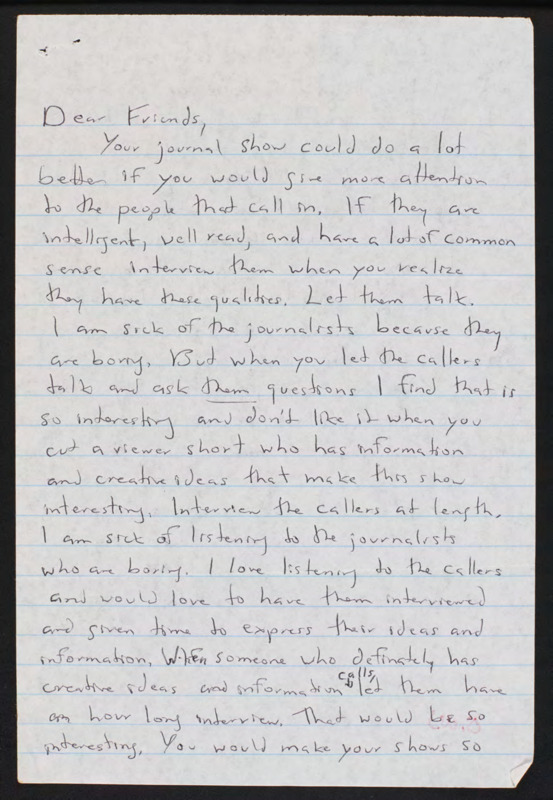 Dear Friends,
Your journal show could do a lot
better if you would give more attention
to the people that call in. If they are
intelligent, well read, and have a lot of common
sense interview them when you realize
they have these qualities. Let them talk.
I am sick of the journalists because they
are boring. But when you let the callers
talk and ask them questions I find that is
so interesting and don't like it when you
cut a viewer short who has information
and creative ideas that make this show
interesting. Interview the callers at length.
I am sick of listening to the journalists
who are boring. I love listening to the callers
and would love to have them interviewed
and given time to express their ideas and
information. When someone who definately has
creative ideas and information calls, let them have
an hour long interview. That would be so
interesting. You would make your shows so